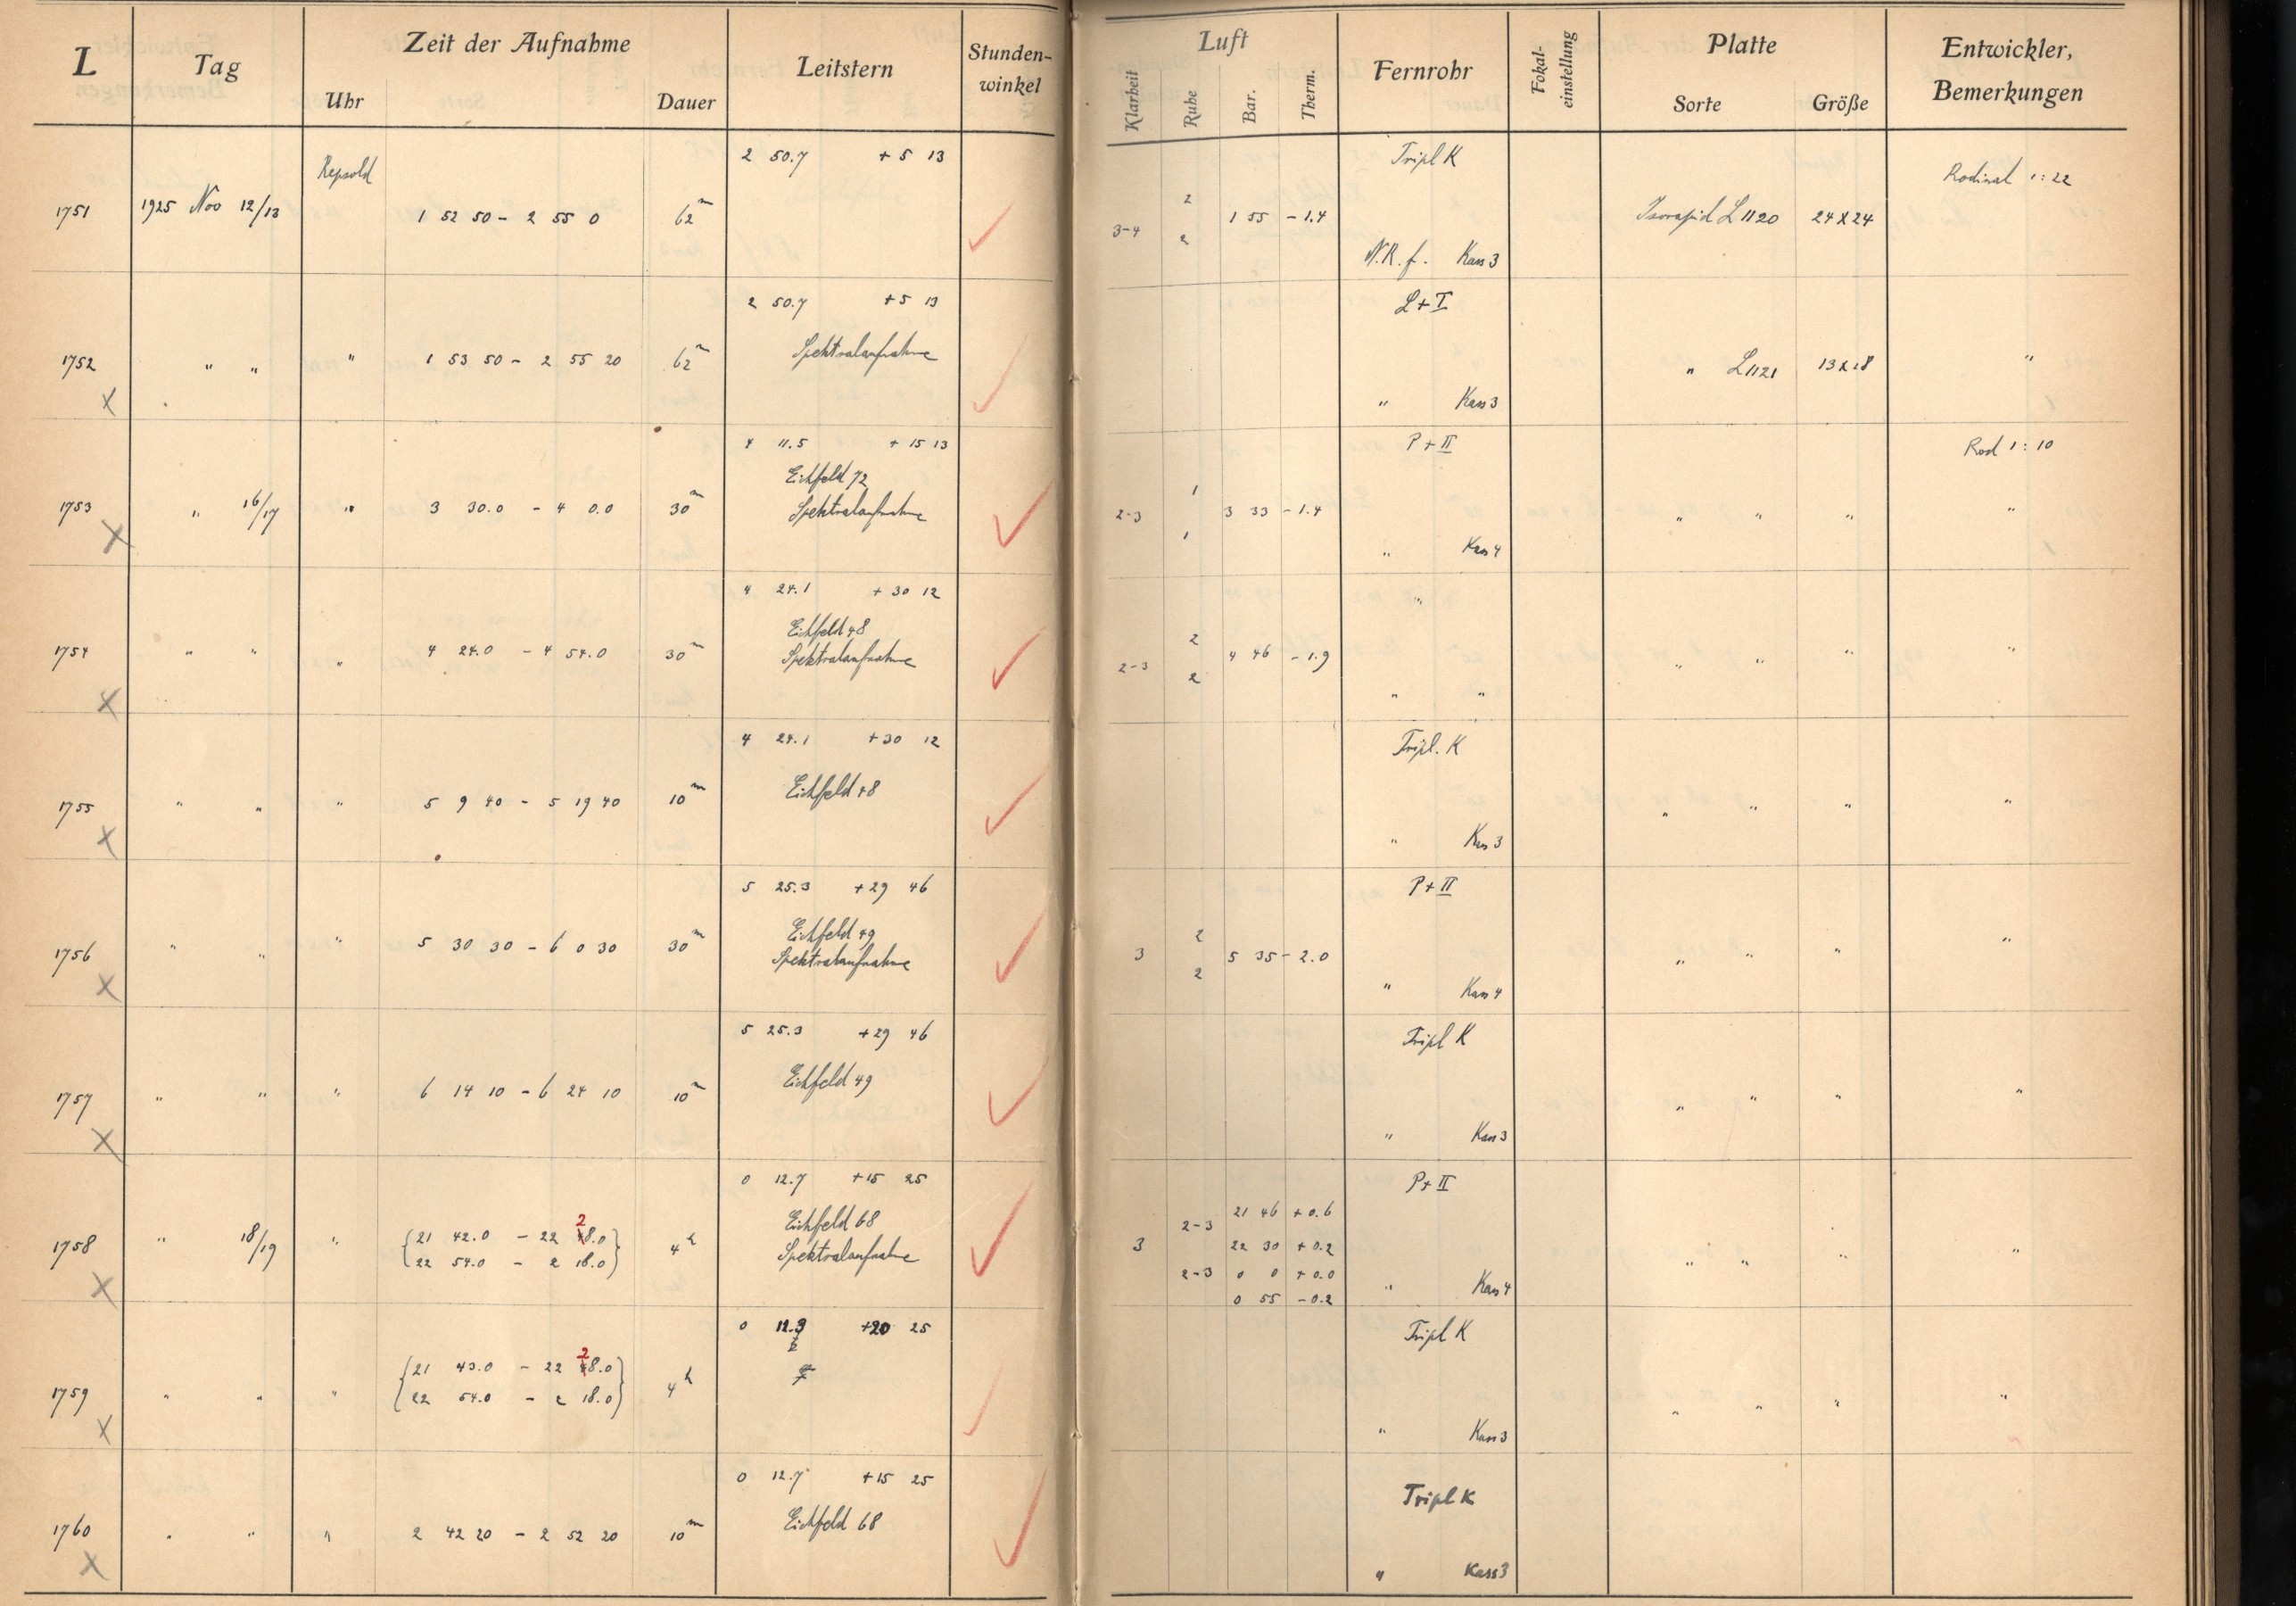 L Tag Zeit der Aufnahme Uhr Dauer Leitstern Stunden-winkel Luft Klarheit Ruhe Bar. Therm. Fernrohr Fokal-einstellung Platte Sorte Größe Entwickler, Bemerkungen
2 50.7 + 5 13 Tripl K
Repsold 2 Rodinal 1:22
1751 1925 Nov 12/13 1 52 50 - 2 55 0 62m 3-4 1 55 - 1.4 Isorapid L 1120 24 x 24
2
N.R.f. Kass 3
2 50.7 + 5 13 L + I
1752 " " " 1 53 50 - 2 55 20 62m Spektralaufnahme " L 1121 13 x 18 "
x " Kass 3
4 11.5 + 15 13 P + II Rod 1:10
Eichfeld 72 1
1753 " 16/17 " 3 30.0 - 4 0.0 30m Spektralaufnahme 2-3 3 33 - 1.4 " " " "
x 1 " Kass 4
4 24.1 + 30 12 "
Eichfeld 48 2
1754 " " " 4 24.0 - 4 54.0 30m Spektralaufnahme 2-3 4 46 - 1.9 " " " "
x 2 " "
4 24.1 + 30 12 Tripl. K
1755 " " " 5 9 40 - 5 19 40 10m Eichfeld 48 " " " "
x " Kass 3
5 25.3 + 29 46 P + II
Eichfeld 49 2
1756 " " " 5 30 30 - 6 0 30 30m Spektralaufnahme 3 5 35 - 2.0 " " " "
x 2 " Kass 4
5 25.3 + 29 46 Tripl K
1757 " " " 6 14 10 - 6 24 10 10m Eichfeld 49 " " " "
x " Kass 3
0 12.7 + 15 25 P + II
2 Eichfeld 68 2-3 21 46 + 0.6
1758 " 18/19 " {21 42.0 - 22 48.0} 4h Spektralaufnahme 3 22 30 + 0.2 " " " "
{22 54.0 - 2 18.0} 2-3 0 0 + 0.0
x 0 55 - 0.2 " Kass 4
0 12.3 + 20 25 Tripl K
2
1759 " " " {21 43.0 - 22 48.0} 4h " " " "
{22 54.0 - 2 18.0}
x " Kass 3
0 12.7 + 15 25 Tripl K
1760 " " " 2 42 20 - 2 52 20 10m Eichfeld 68
x " Kass 3